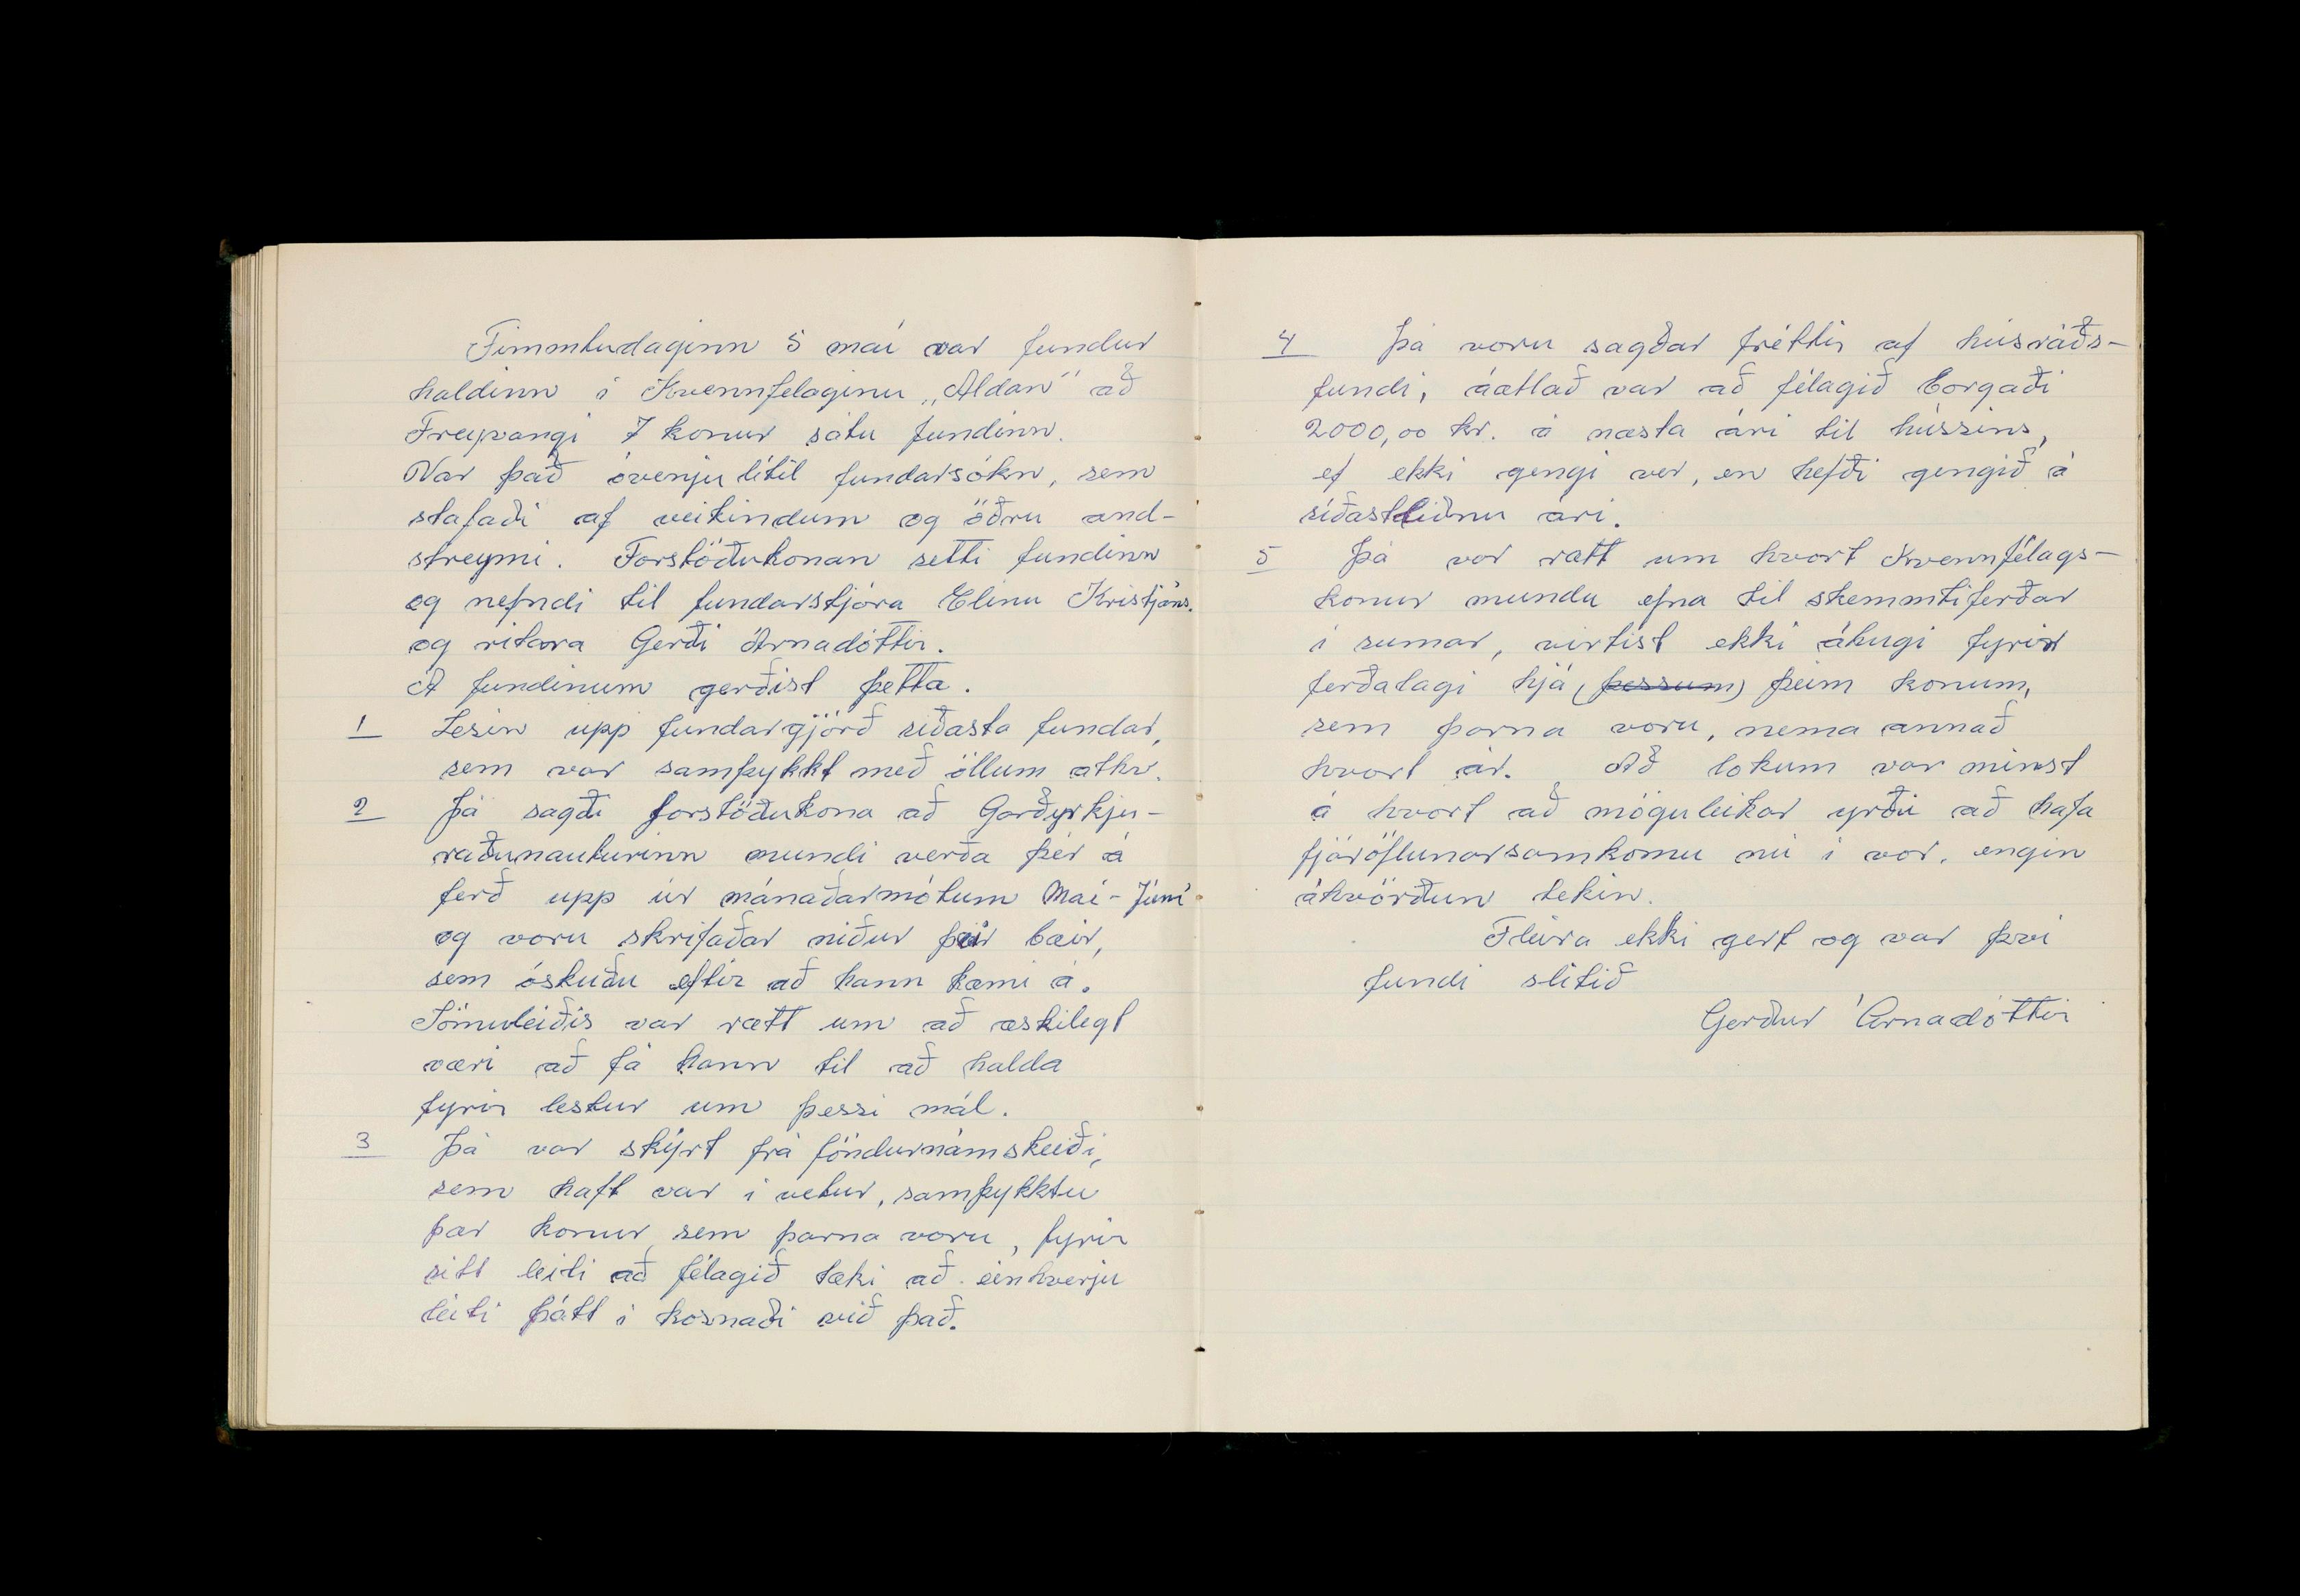 Fimmtudaginn 5 maí var fundur
haldinn í Kvennfelaginu „Aldan" að
Freyvangi 7 konur sátu fundinn.
Var það óvenju lítil fundarsókn, sem
stafaði af veikindum og öðru and-
streymi. Forstöðukonan setti fundinn
og nefndi til fundarstjóra Elínu Kristjáns.
og ritara Gerði Árnadóttir.
Á fundinum gerðist þetta.
1 Lesin upp fundargjörð síðasta fundar,
sem var samþykkt með öllum atkv.
2 Þá sagði forstöðukona að Garðyrkju-
raðunauturinn mundi verða hér á
ferð upp úr mánaðarmótum Maí-Júní
og voru skrifaðar niður þeir bæir,
sem óskuðu eftir að hann kæmi á.
Sömuleiðis var rætt um að æskilegt
væri að fá hann til að halda
fyrir lestur um þessi mál.
3 Þá var skýrt frá föndurnámskeiði,
sem haft var í vetur, samþykktu
þær konur sem þarna voru, fyrir
sitt leiti að félagið tæki að einhverju
leiti þátt í kosnaði við það.
4 Þá voru sagðar fréttir af húsráðs-
fundi, áætlað var að félagið borgaði
2000,00 kr. á næsta ári til hússins,
ef ekki gengi ver, en hefði gengið á
síðastliðnu ári.
5 Þá var rætt um hvort Kvennfélags-
konur mundu efna til skemmtiferðar
í sumar, virtist ekki áhugi fyrir
ferðalagi hjá (þessum) þeim konum,
sem þarna voru, nema annað
hvort ár. Að lokum var minst
á hvort að möguleikar yrðu að hafa
fjáröflunarsamkomu nú í vor, engin
ákvörðun tekin.
Fleira ekki gert og var því
fundi slitið
Gerður Árnadóttir